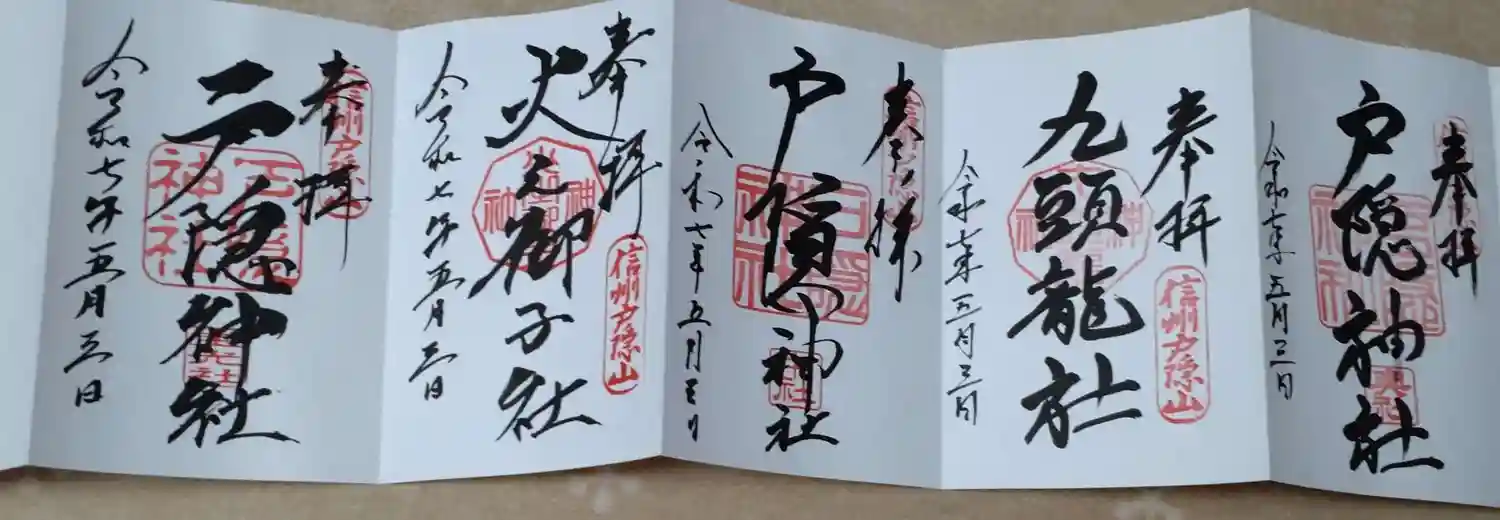 奉拝
戸隠神社
令和七年五月三日
奉拝
信州戸隠山
九頭龍社
令和七年五月三日
奉拝
信州戸隠山
戸隠神社
戸隠神社
中社
令和七年五月三日
奉拝
信州戸隠山
火之御子社
令和七年五月三日
奉拝
信州戸隠山
戸隠神社
戸隠神社
令和七年五月三日